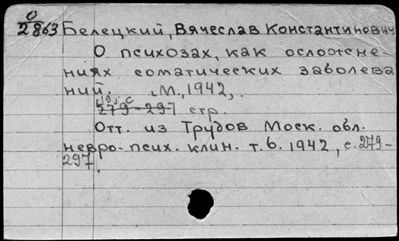 О
2863 Белецкий, Вячеслав Константинович
О психозах, как ослоотсне-
ниях соматических заболева
ний. М., 1942,.
19 с
279-297 стр.
Отт. из Трудов Моск. обл.
невро-псих. клин. т. 6. 1942, с. 279-
297.